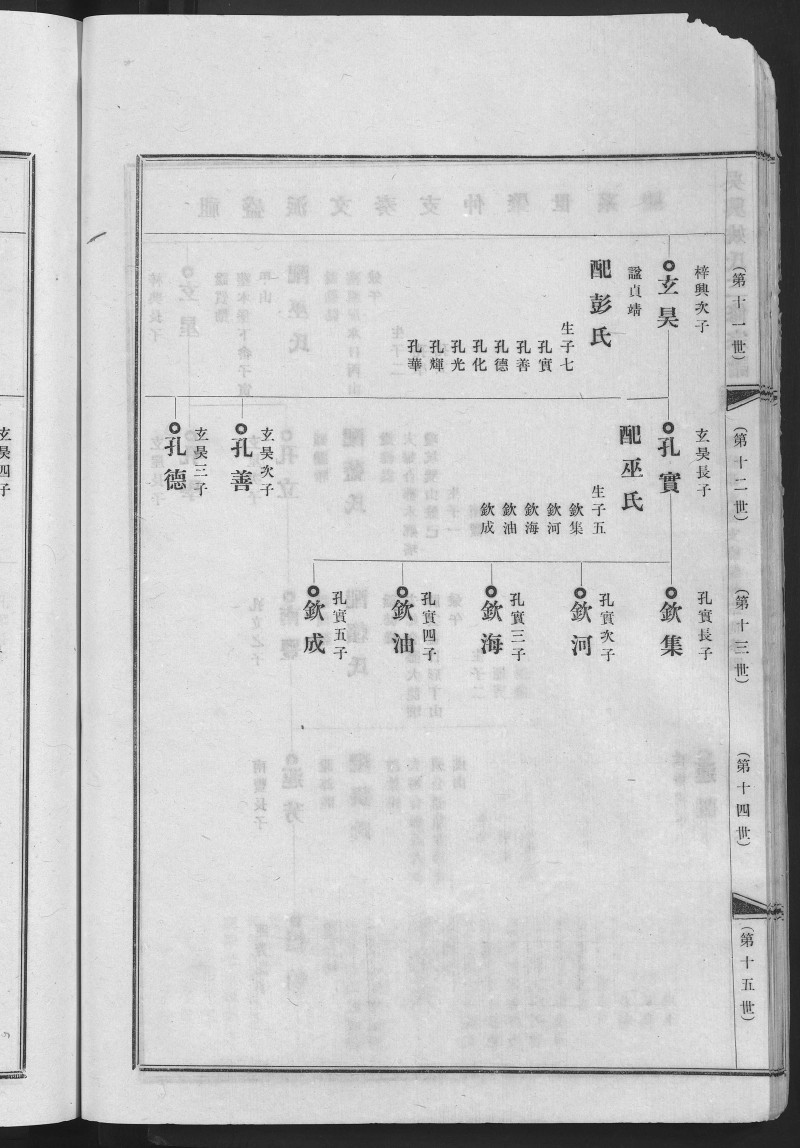 (第十一世)
梓興次子
玄昊
諡貞靖
配彭氏
生子七
孔實
孔善
孔德
孔化
孔光
孔輝
孔華
(第十二世)
玄昊長子
孔實
配巫氏
生子五
欽集
欽河
欽海
欽油
欽成
玄昊次子
孔善
玄昊三子
孔德
玄昊四子
(第十三世)
孔實長子
欽集
孔實次子
欽河
孔實三子
欽海
孔實四子
欽油
孔實五子
欽成
(第十四世)
(第十五世)